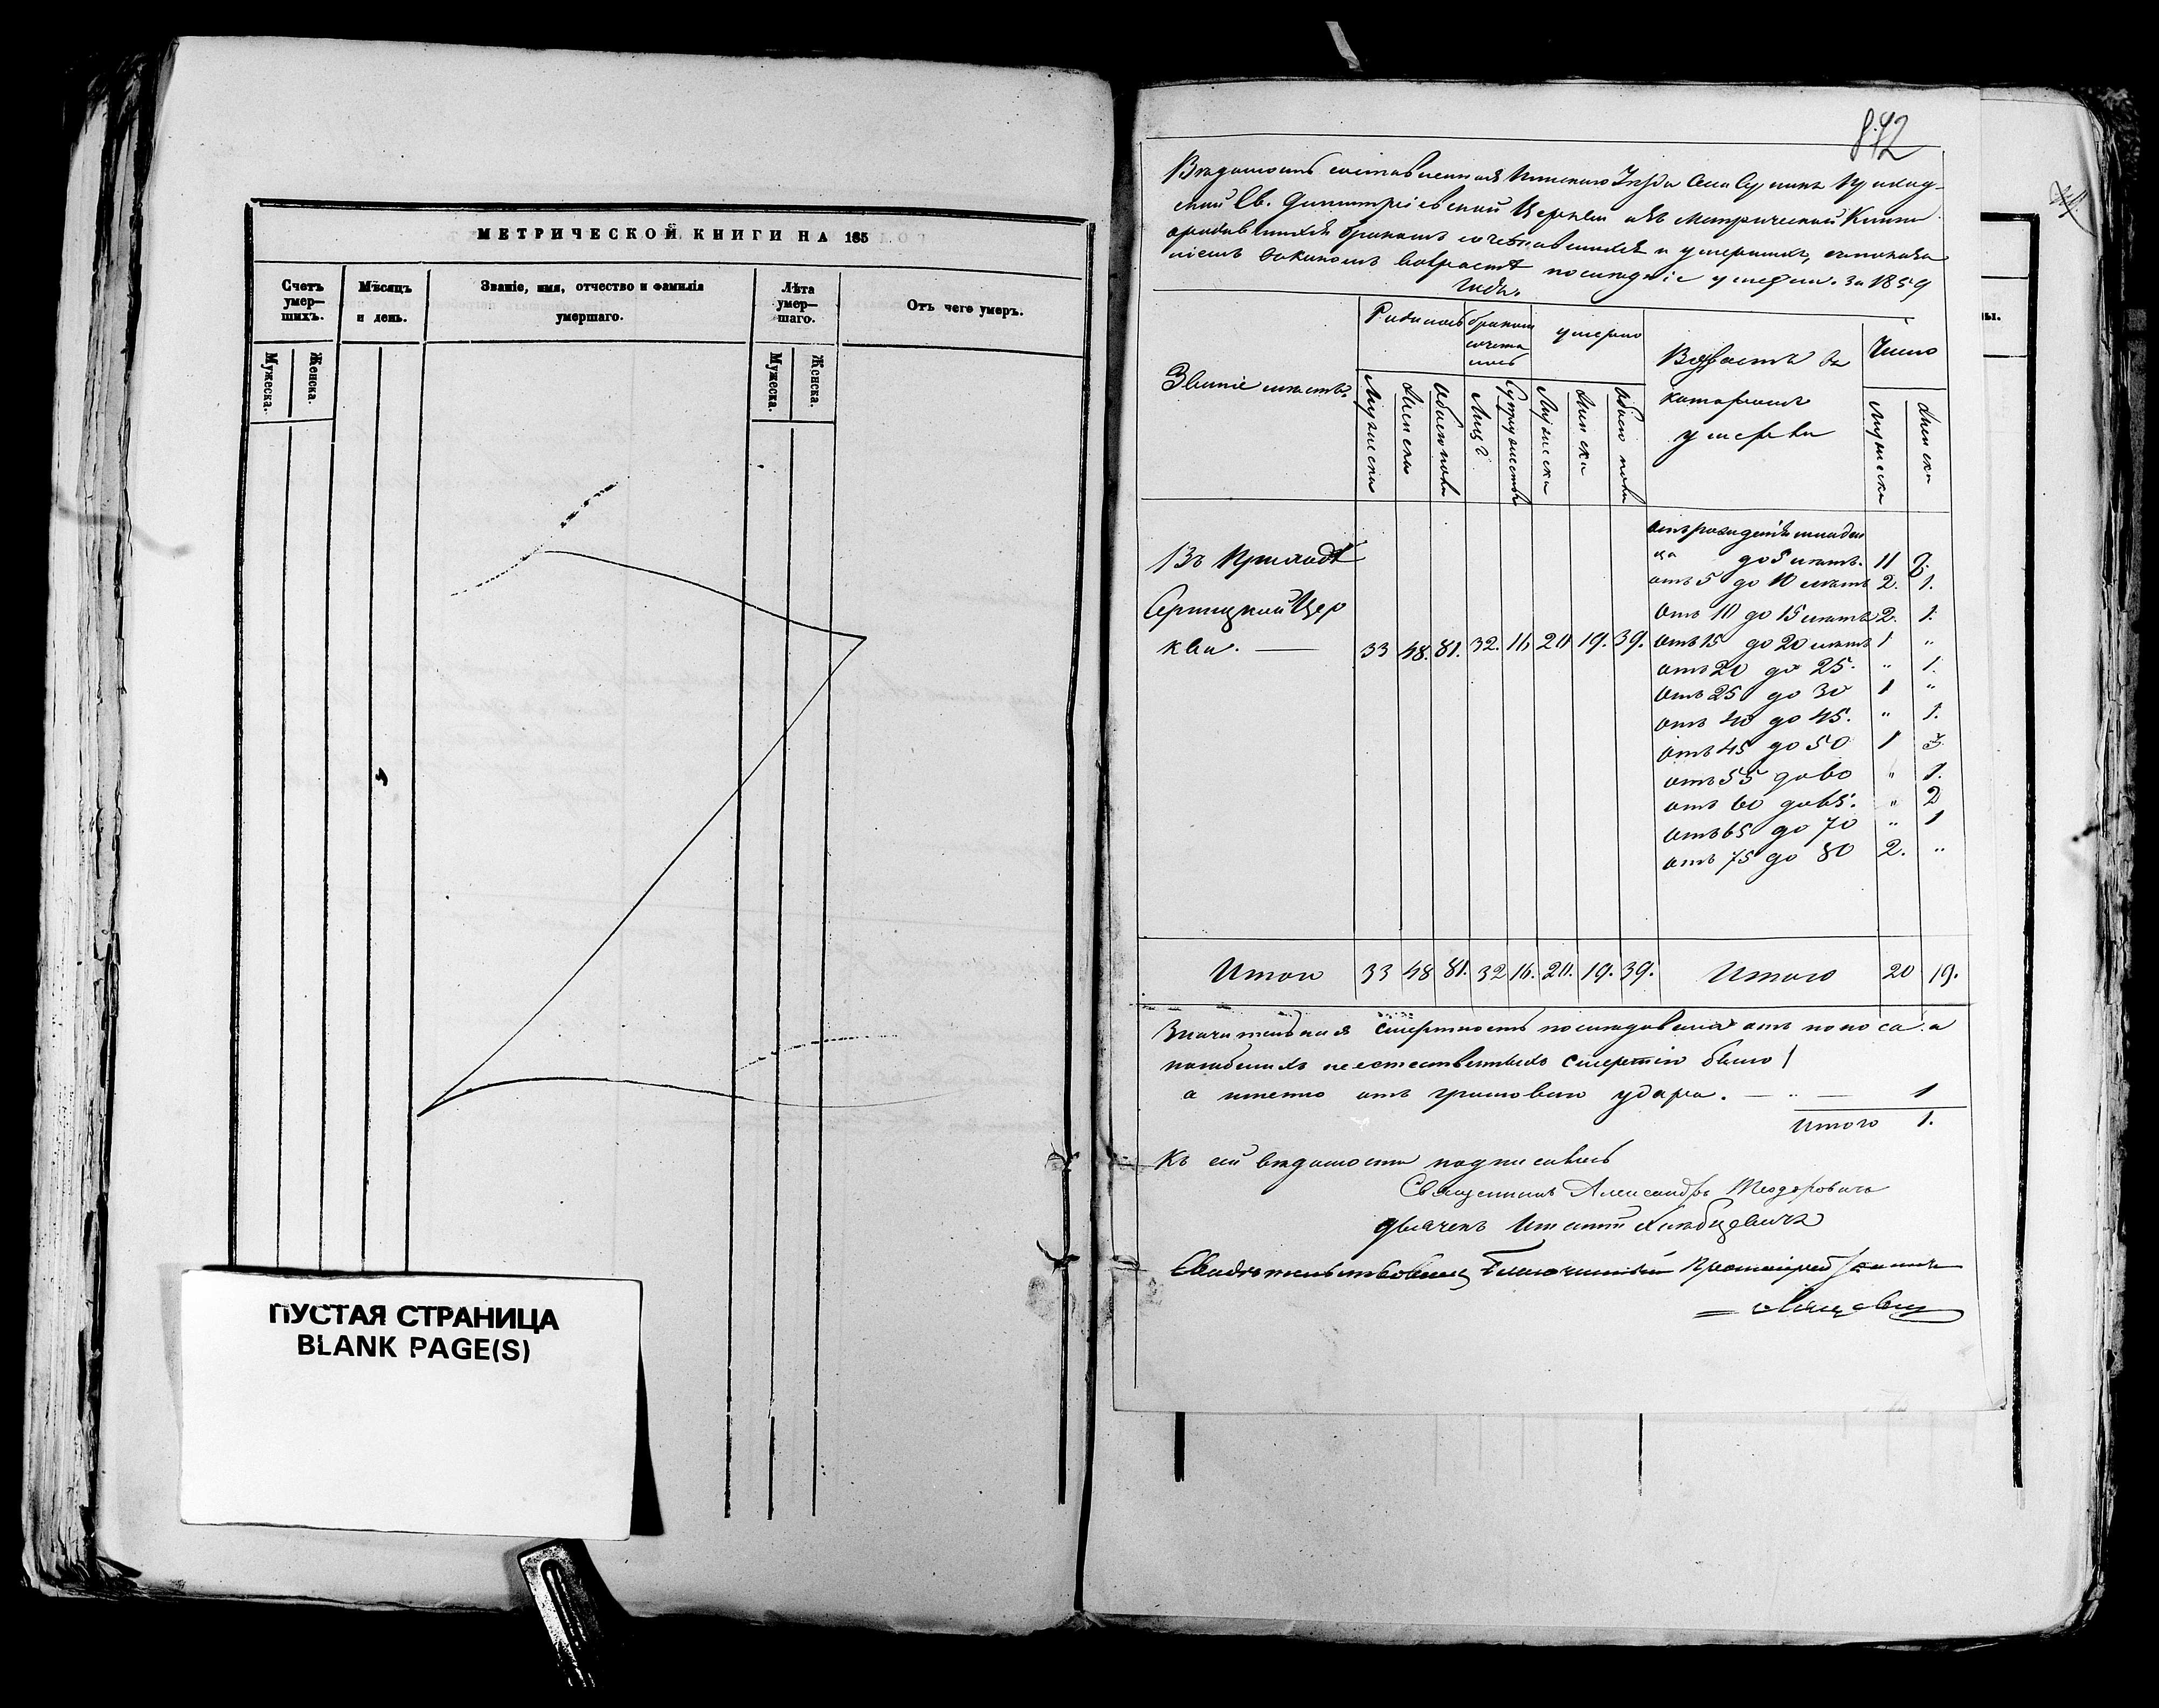 МЕТРИЧЕСКОЙ КНИГИ НА 185
Счетъ умер—шихъ.
Мѣсяцъ и день.
Званіе, имя, отчество и фамилія умершаго.
Лѣта умер—шаго.
Отъ чего умеръ.
Мужеска.
Женска.
Мужеска.
Женска.
ПУСТАЯ СТРАНИЦА
BLANK PAGE(S)
872
Вѣдомость составленная Пинскаго Уѣзда Села Приход-
ской Св. Димитріевской Церкви изъ Метрической Книги
о родившихся бракомъ сочетавшихся и умершихъ, съ показа
ніемъ въ какомъ возрастѣ послѣдніе умерли. за 1859
года.
Званіе мѣстъ.
Родилось
бракомъ сочета лось
умерло
Возрастъ въ которомъ умерли
Число
Мужеска
Женска
Обоего пола
Лицъ
Супружествъ
Мужеска
Женска
Обоего пола
Мужеска
Женска
Въ Приходѣ
Цер
кви. —
33 48. 81. 32. 16 20 19. 39.
отъ рожденія младен
ца до 5 лѣтъ. 11 8.
отъ 5 до 10 лѣтъ 2. 1.
отъ 10 до 15 лѣтъ 2. 1.
отъ 15 до 20 лѣтъ 1 "
отъ 20 до 25. " 1.
отъ 25 до 30 1 "
отъ 40 до 45. " 1.
отъ 45 до 50 1 3.
отъ 55 до 60 " 1.
отъ 60 до 65. " 2
отъ 65 до 70 " 1
отъ 75 до 80 2. "
Итого 33 48 81. 32 16. 20. 19. 39. Итого 20 19.
Значительная смертность послѣдовала отъ поноса а
погибшихъ неестественныхъ смертію было 1
а именно отъ громоваго удара. — " — 1
Итого 1.
Къ сей вѣдомости подписались
Священникъ Александръ Теодоровичъ
дьячекъ Хлѣбцевичъ
Свидѣтельствовалъ Благочинный Протоіерей
ны.